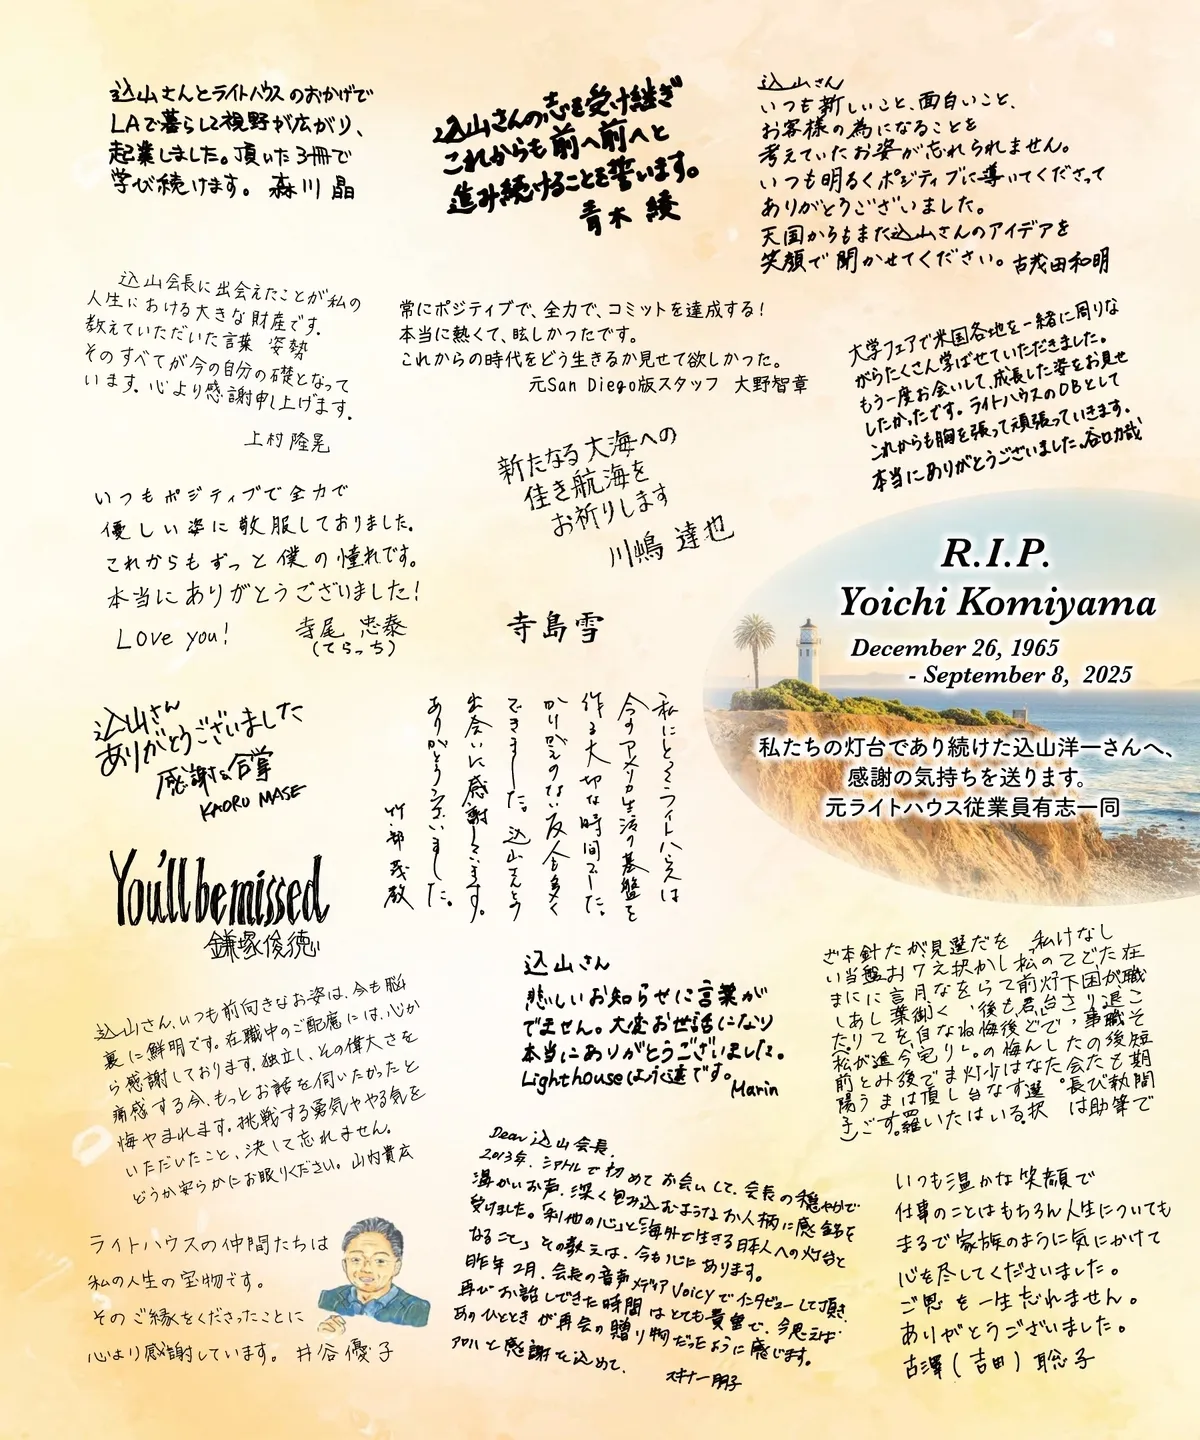 込山さんとライトハウスのおかげで
LAで暮らして視野が広がり、
起業しました。頂いた3冊で
学び続けます。 森川 晶
込山さんの志を受け継ぎ
これからも前へ前へと
進み続けることを誓います。
青木 綾
込山さん
いつも新しいこと、面白いこと、
お客様の為になることを
考えていたお姿が忘れられません。
いつも明るくポジティブに導いてくださって
ありがとうございました。
天国からもまた込山さんのアイデアを
笑顔で聞かせてください。古茂田和明
込山会長に出会えたことが私の
人生における大きな財産です。
教えていただいた言葉 姿勢
そのすべてが今の自分の礎となって
います。心より感謝申し上げます。
上村 隆晃
常にポジティブで、全力で、コミットを達成する!
本当に熱くて、眩しかったです。
これからの時代をどう生きるか見せて欲しかった。
元San Diego版スタッフ 大野智章
大学フェアで米国各地を一緒に周りな
がらたくさん学ばせていただきました。
もう一度お会いして、成長した姿をお見せ
したかったです。ライトハウスのOBとして
これからも胸を張って頑張っていきます。
本当にありがとうございました。谷口力哉
いつもポジティブで全力で
優しい姿に敬服しておりました。
これからもずっと僕の憧れです。
本当にありがとうございました!
Love you! 寺尾 忠泰
(てらっち)
新たなる大海への
佳き航海を
お祈りします
川嶋 達也
寺島雪
R.I.P.
Yoichi Komiyama
December 26, 1965
- September 8, 2025
私たちの灯台であり続けた込山洋一さんへ、
感謝の気持ちを送ります。
元ライトハウス従業員有志一同
込山さん
ありがとうございました
感謝&合掌
KAORU MASE
私にとってライトハウスは
今のアメリカ生活の基盤を
作る大切な時間でした。
かけがえのない友人も多く
できました。込山さんとの
出会いに感謝しています。
ありがとうございました。
竹部 茂敬
You'll be missed
鎌塚俊徳
込山さん
悲しいお知らせに言葉が
でません。大変お世話になり
本当にありがとうございました。
Lighthouseは永遠です。
Marin
在職こそ短期間で
したが、退職後も執筆で
なだ困った事がたび助
けてくださり、会長は
私の下で
「私の灯台」でした。
込山さん、いつも前向きなお姿は、今も脳
裏に鮮明です。在職中のご配慮には、心か
ら感謝しております。独立し、その偉大さを
痛感する今、もっとお話を伺いたかったと
悔やまれます。挑戦する勇気ややる気を
いただいたこと、決して忘れません。
どうか安らかにお眠りください。山内貴広
Dear 込山会長、
2013年、シアトルで初めてお会いして、会長の穏やかで
温かいお声、深く包み込むようなお人柄に感銘を
受けました。「利他の心」と「海外で生きる日本人への灯台と
なること」その教えは、今も心にあります。
昨年2月、会長の音声メディアVoicyでインタビューして頂き、
再びお話しできた時間はとても貴重で、今思えば
あのひとときが再会の贈り物だったように感じます。
アロハと感謝を込めて、
スキナー朋子
いつも温かな笑顔で
仕事のことはもちろん人生についても
まるで家族のように気にかけて
心を尽してくださいました。
ご恩を一生忘れません。
ありがとうございました。
古澤(吉田)聡子
ライトハウスの仲間たちは
私の人生の宝物です。
そのご縁をくださったことに
心より感謝しています。 井谷優子